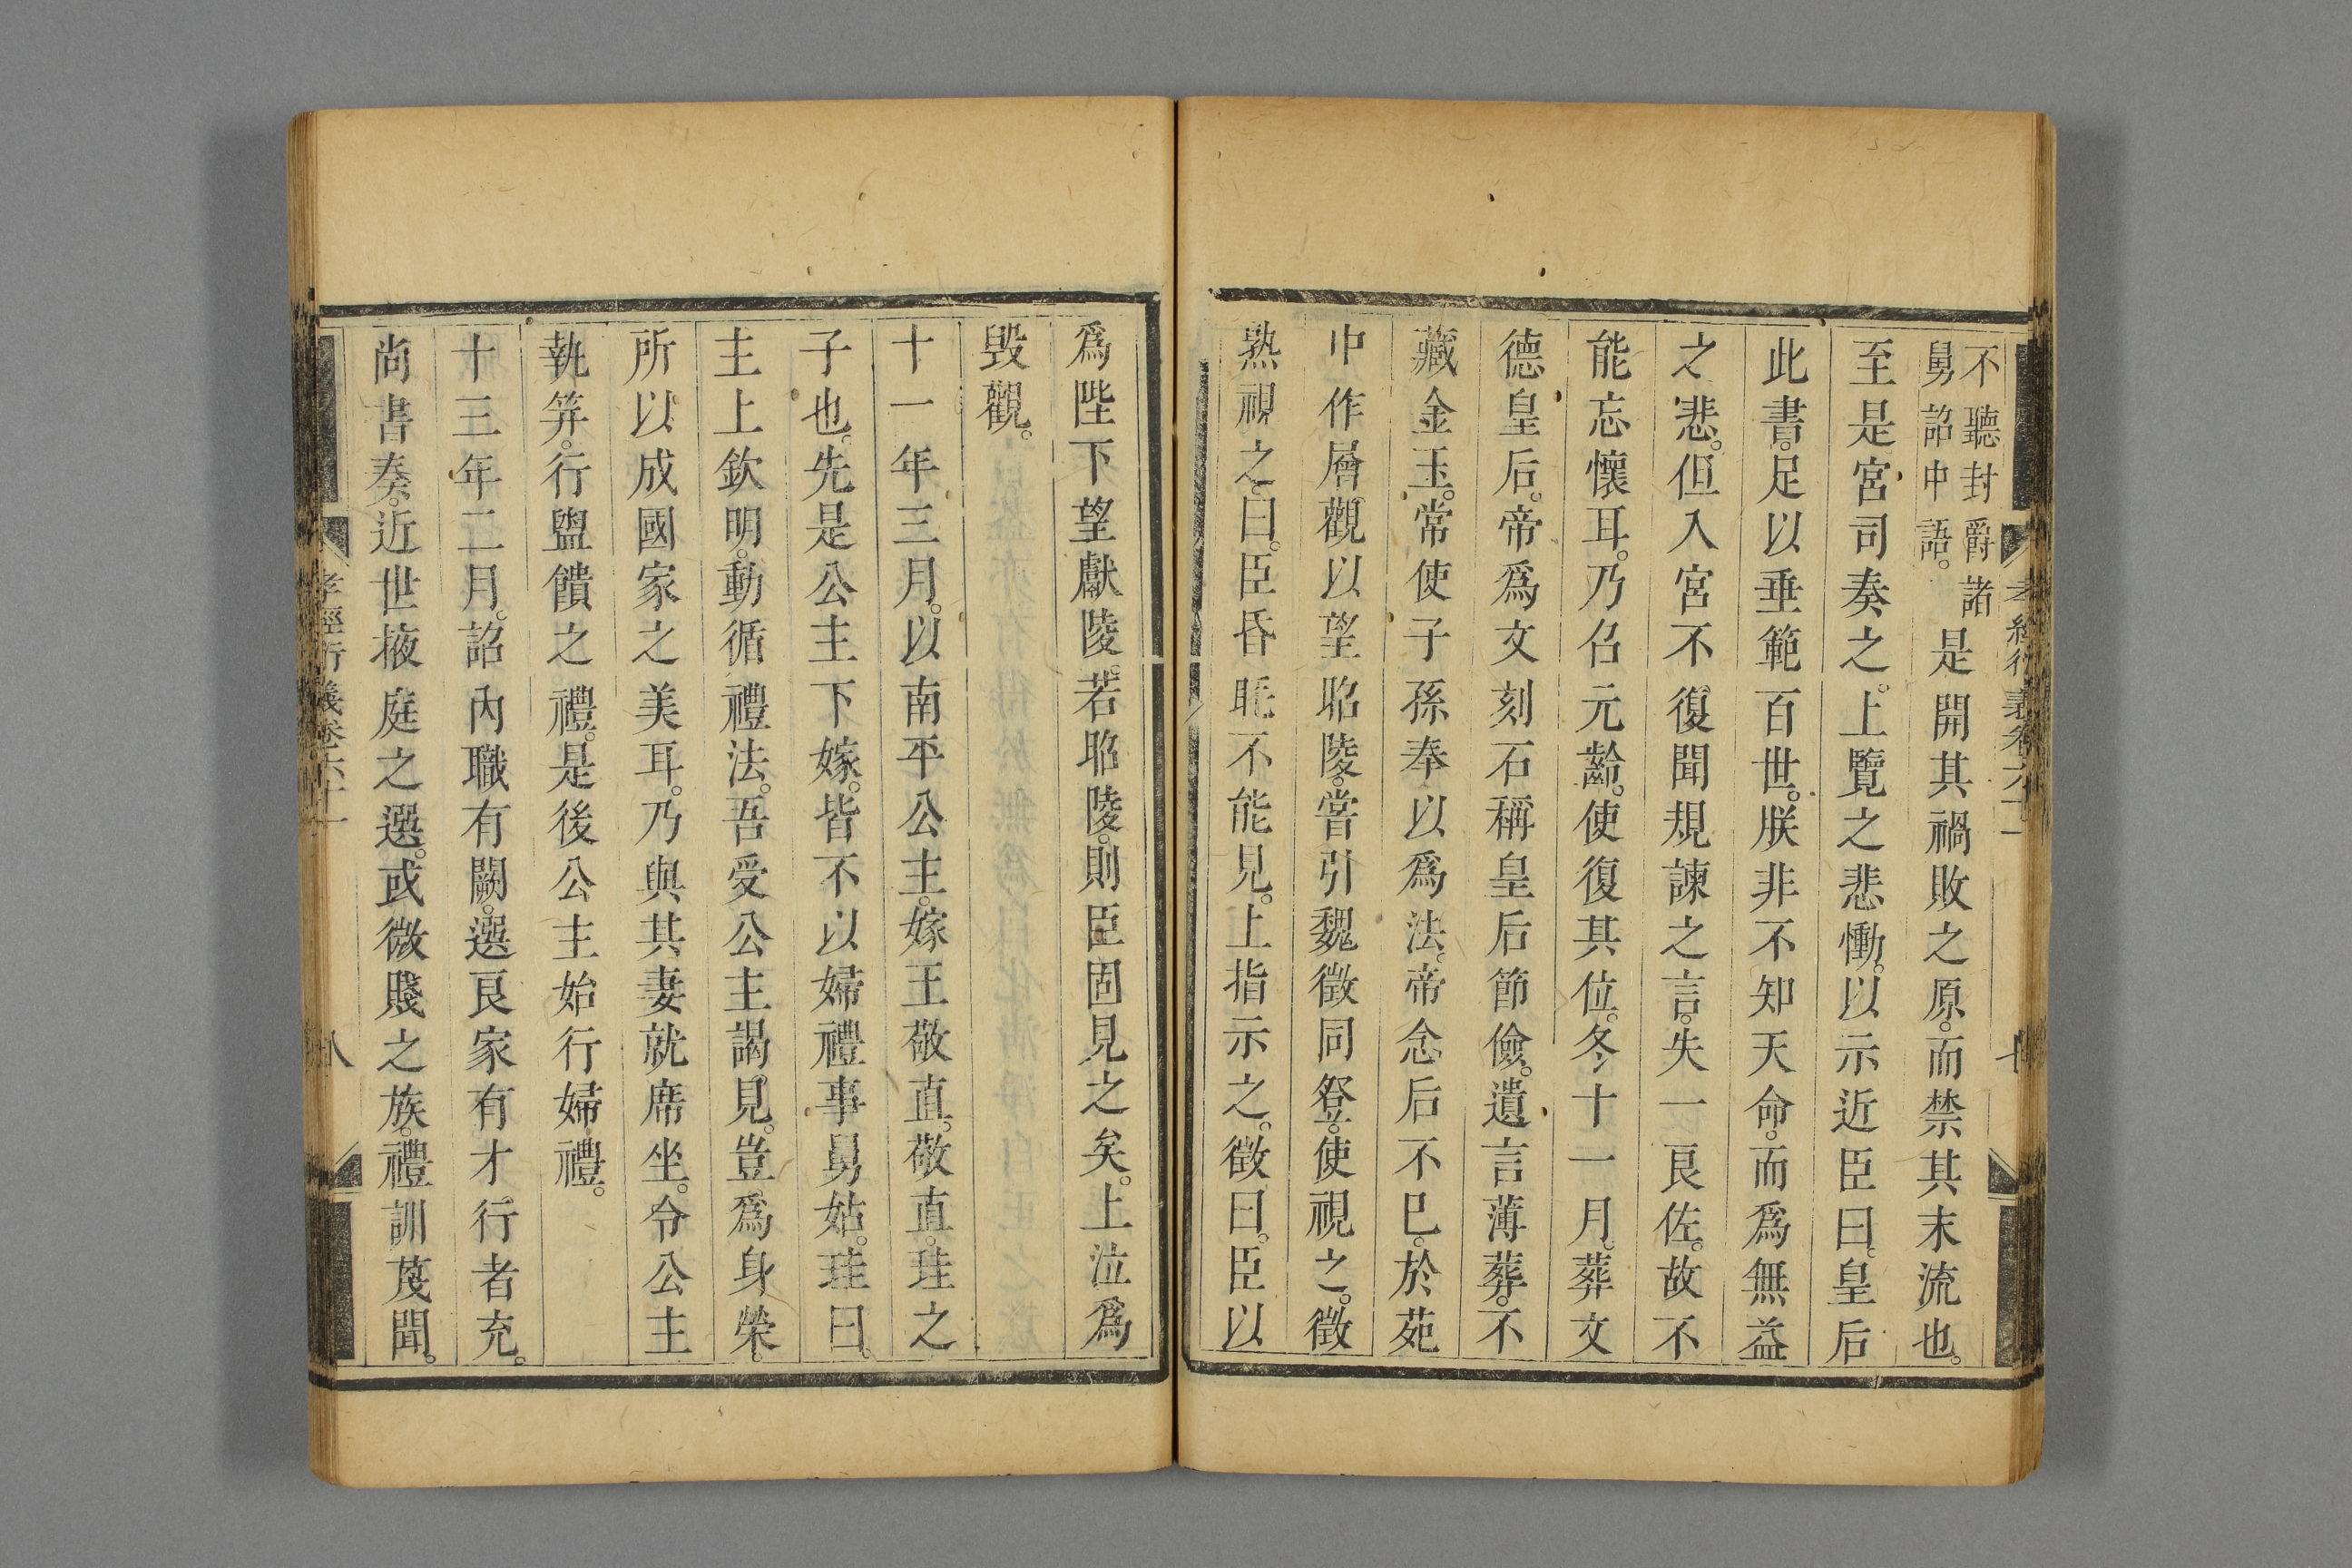 孝經衍義卷六十一
七
不聽封爵諸
舅詔中語。
是開其禍敗之原。而禁其末流也。
至是宮司奏之。上覽之悲慟。以示近臣曰。皇后
此書。足以垂範百世。朕非不知天命。而爲無益
之悲。但入宮不復聞規諫之言。失一良佐。故不
能忘懷耳。乃召元齡。使復其位。冬十一月。葬文
德皇后。帝爲文刻石稱皇后節儉。遺言薄葬。不
藏金玉。常使子孫奉以爲法。帝念后不已。於苑
中作層觀以望昭陵。嘗引魏徵同登。使視之。徵
熟視之。曰。臣昏眊不能見。上指示之。徵曰。臣以
爲陛下望獻陵。若昭陵。則臣固見之矣。上泣爲
毀觀。
十一年三月。以南平公主。嫁王敬直。敬直。珪之
子也。先是公主下嫁。皆不以婦禮事舅姑。珪曰。
主上欽明。動循禮法。吾受公主謁見。豈爲身榮。
所以成國家之美耳。乃與其妻就席坐。令公主
執笲。行盥饋之禮。是後公主始行婦禮。
十三年二月。詔內職有闕。選良家有才行者充。
尚書奏。近世掖庭之選。或微賤之族。禮訓蔑聞。
孝經衍義卷六十一
八